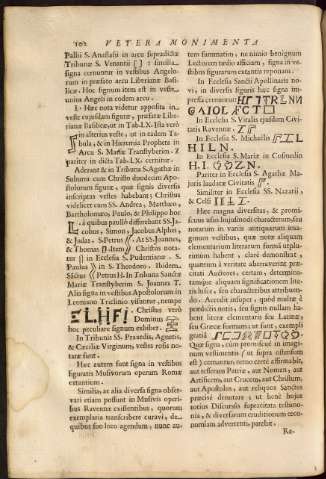 102 VETERA MONIMENTA
Pallii S. Anastasii in arcu supradictæ
Tribunæ S. Venantii : similia
signa cernuntur in vestibus Angelo-
rum in præfato arcu Liberianæ Basi-
licæ. Hoc signum item est in veste
unius Angeli in eodem arcu.
I. Hæc nota videtur apposita in
veste ejusdem figuræ, præfatæ Libe-
rianæ Basilicæ, ut in Tab. LX. Ista verò
in alterius veste, ut in eadem Ta-
bula, & in Hieremia Propheta in
Arcu S. Mariæ Transtyberim.
pariter in dicta Tab. LX. cernitur.
Aderant & in Tribuna S. Agathæ in
Suburra cum Christo duodecim Apo-
stolorum figuræ, quæ signis diversa
inscriptas vestes habebant; Christus
videlicet cum SS. Andrea, Matthæo,
Bartholomæo, Paulo, & Philippo hoc
à quibus pusillò differebant SS. Ja-
cobus, Simon, Jacobus Alphæi,
& Judas. S. Petrus At SS. Joannes,
& Thomas Item Christus nota-
tur in Ecclesia S. Pudentianæ. S.
Paulus in S. Theodoro. Ibidem,
S. Petrus H. In Tribuna Sanctæ
Mariæ Transtyberim S. Joannes I.
Alio signo in vestibus Apostolorum in
Leoniano Triclinio visuntur, nempe
Christus verò
Dominus
hoc peculiare signum exhibet.
In Tribunis SS. Praxedis, Agnetis,
& Cæciliæ Virginum, vestes istis no-
tatæ sunt.
Hæc autem sunt signa in vestibus
figuratis Musivorum operum Romæ
extantium.
Similia, ac alia diversa signa obser-
vari etiam possunt in Musivis operi-
bus Ravennæ existentibus, quorum
exemplaria transcribere curavi, de
quibus suo loco agendum, nunc au-
tem summatim, ne nimio benignum
Lectorem tædio afficiam, signa in ve-
stibus figurarum extantia reponam.
In Ecclesia Sancti Apollinaris no-
vi, in diversis figuris hæc signa im-
pressa cernuntur
In Ecclesia S. Vitalis ejusdem Civi-
tatis Ravennæ
In Ecclesia S. Michaelis
H I L N.
In Ecclesia S. Mariæ in Cosmedin
H. I.
Pariter in Ecclesia S. Agathæ Ma-
joris laudatæ Civitatis
Similiter in Ecclesia SS. Nazarii,
& Celsi
Hæc magna diversitas, & promi-
scuus usus hujusmodi characterum, seu
notarum in variis antiquarum ima-
ginum vestibus, quæ nostro aliquam
elementarium literarum formâ usplu-
rimùm habent, clarè demonstrat,
quantùm à veritate aberraverint præ-
citati Auctores, certam, determina-
tamque aliquam significationem literis
hisce, seu characteribus attribuen-
do. Accedit insuper, quòd multæ è
prædictis notis, seu signis nullam ha-
bent literæ elementaris seu Latinæ,
seu Græcæ formam; ut sunt, exempli
gratiâ
Quæ signa, cùm promiscuè in imagi-
num vestimentis (ut supra ostensum
est) cernantur, nemo certè affirmabit,
aut tesseram Patriæ, aut Nomen, aut
Artificem, aut Crucem, aut Christum,
aut Apostolos, aut reliquos Sanctos
præcisè denotare; ut benè hujus
notius Discursus supracitata testimo-
nia, & diversarum eruditionum tecum
moniam advertenti, patebit.
Re-